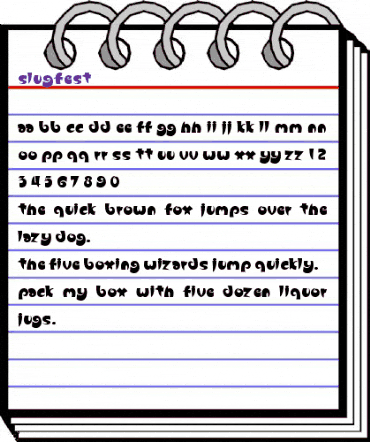 slugfest
aa bb cc dd ee ff gg hh ii jj kk ll mm nn
oo pp qq rr ss tt uu vv ww xx yy zz 1 2
3 4 5 6 7 8 9 0
the quick brown fox jumps over the
lazy dog.
the five boxing wizards jump quickly.
pack my box with five dozen liquor
jugs.